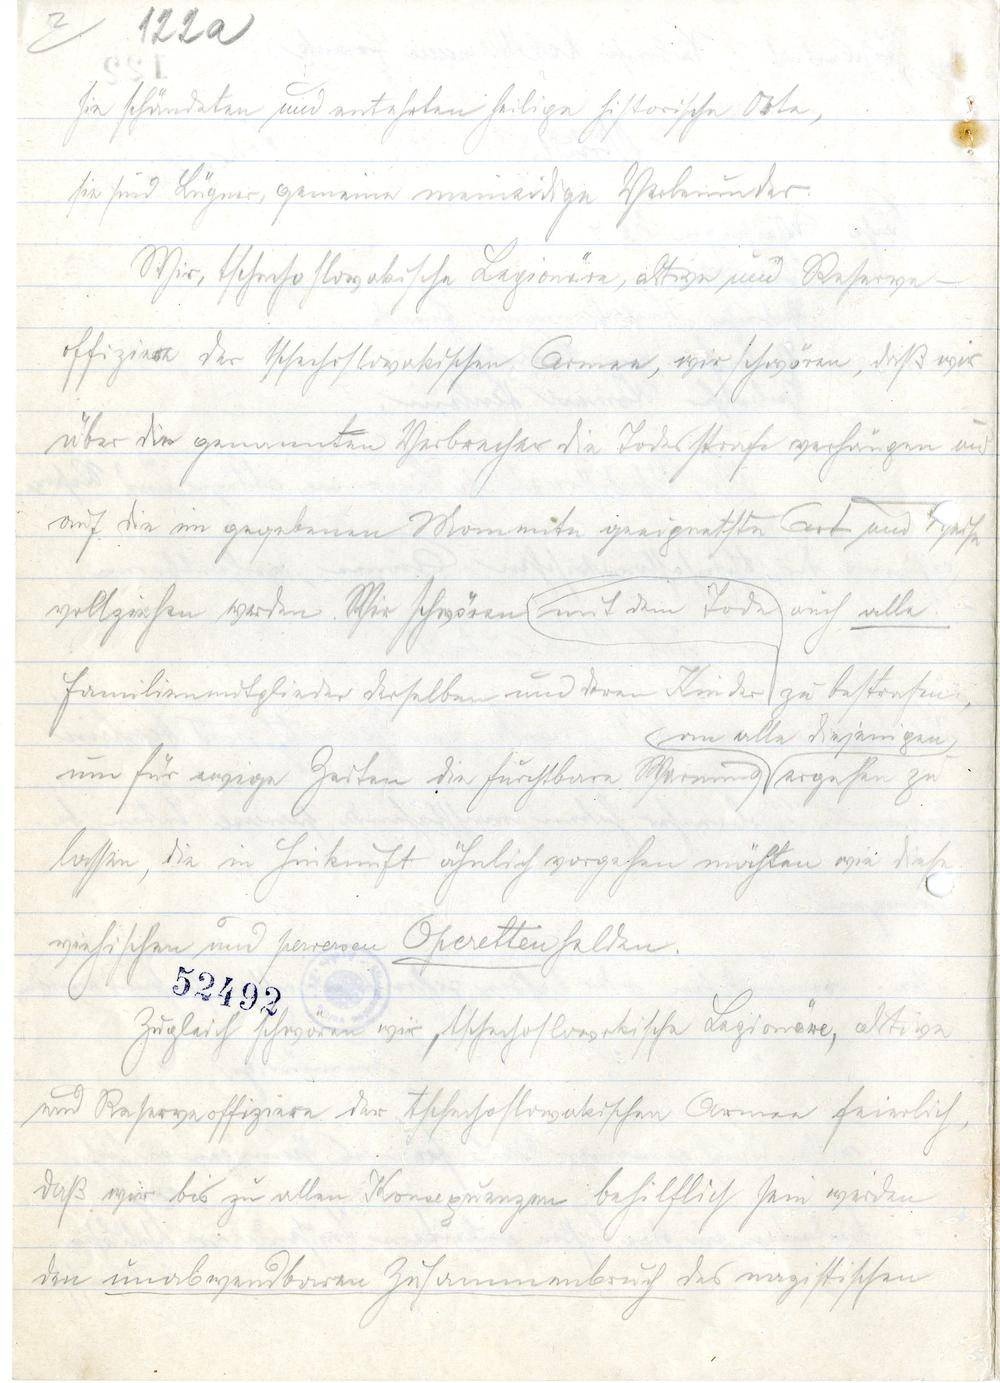 2
122a
sie schändeten und entehrten heilige historische Orte,
sie sind Lügner, gemeine meineidige Verleumder.
Wir, tschechoslowakische Legionäre, aktive und Reserve-
offiziere der tschechoslowakischen Armee, wir schwören, daß wir
über die genannten Verbrecher die Todesstrafe verhängen und
auf die im gegebenen Momente geeignetste Art und Weise
vollziehen werden. Wir schwören mit dem Tode auch alle
Familienmitglieder derselben und deren Kinder zu bestrafen,
an alle diejenigen,
um für ewige Zeiten die furchtbare Warnung ergehen zu
lassen, die in Hinkunft ähnlich vorgehen möchten wie diese
viehischen und perversen Operettenhelden.
52492
Zugleich schwören wir, tschechoslowakische Legionäre, aktive
und Reserveoffiziere der tschechoslowakischen Armee feierlich,
daß wir bis zu allen Konsequenzen behilflich sein werden
den unabwendbaren Zusammenbruch des nazistischen